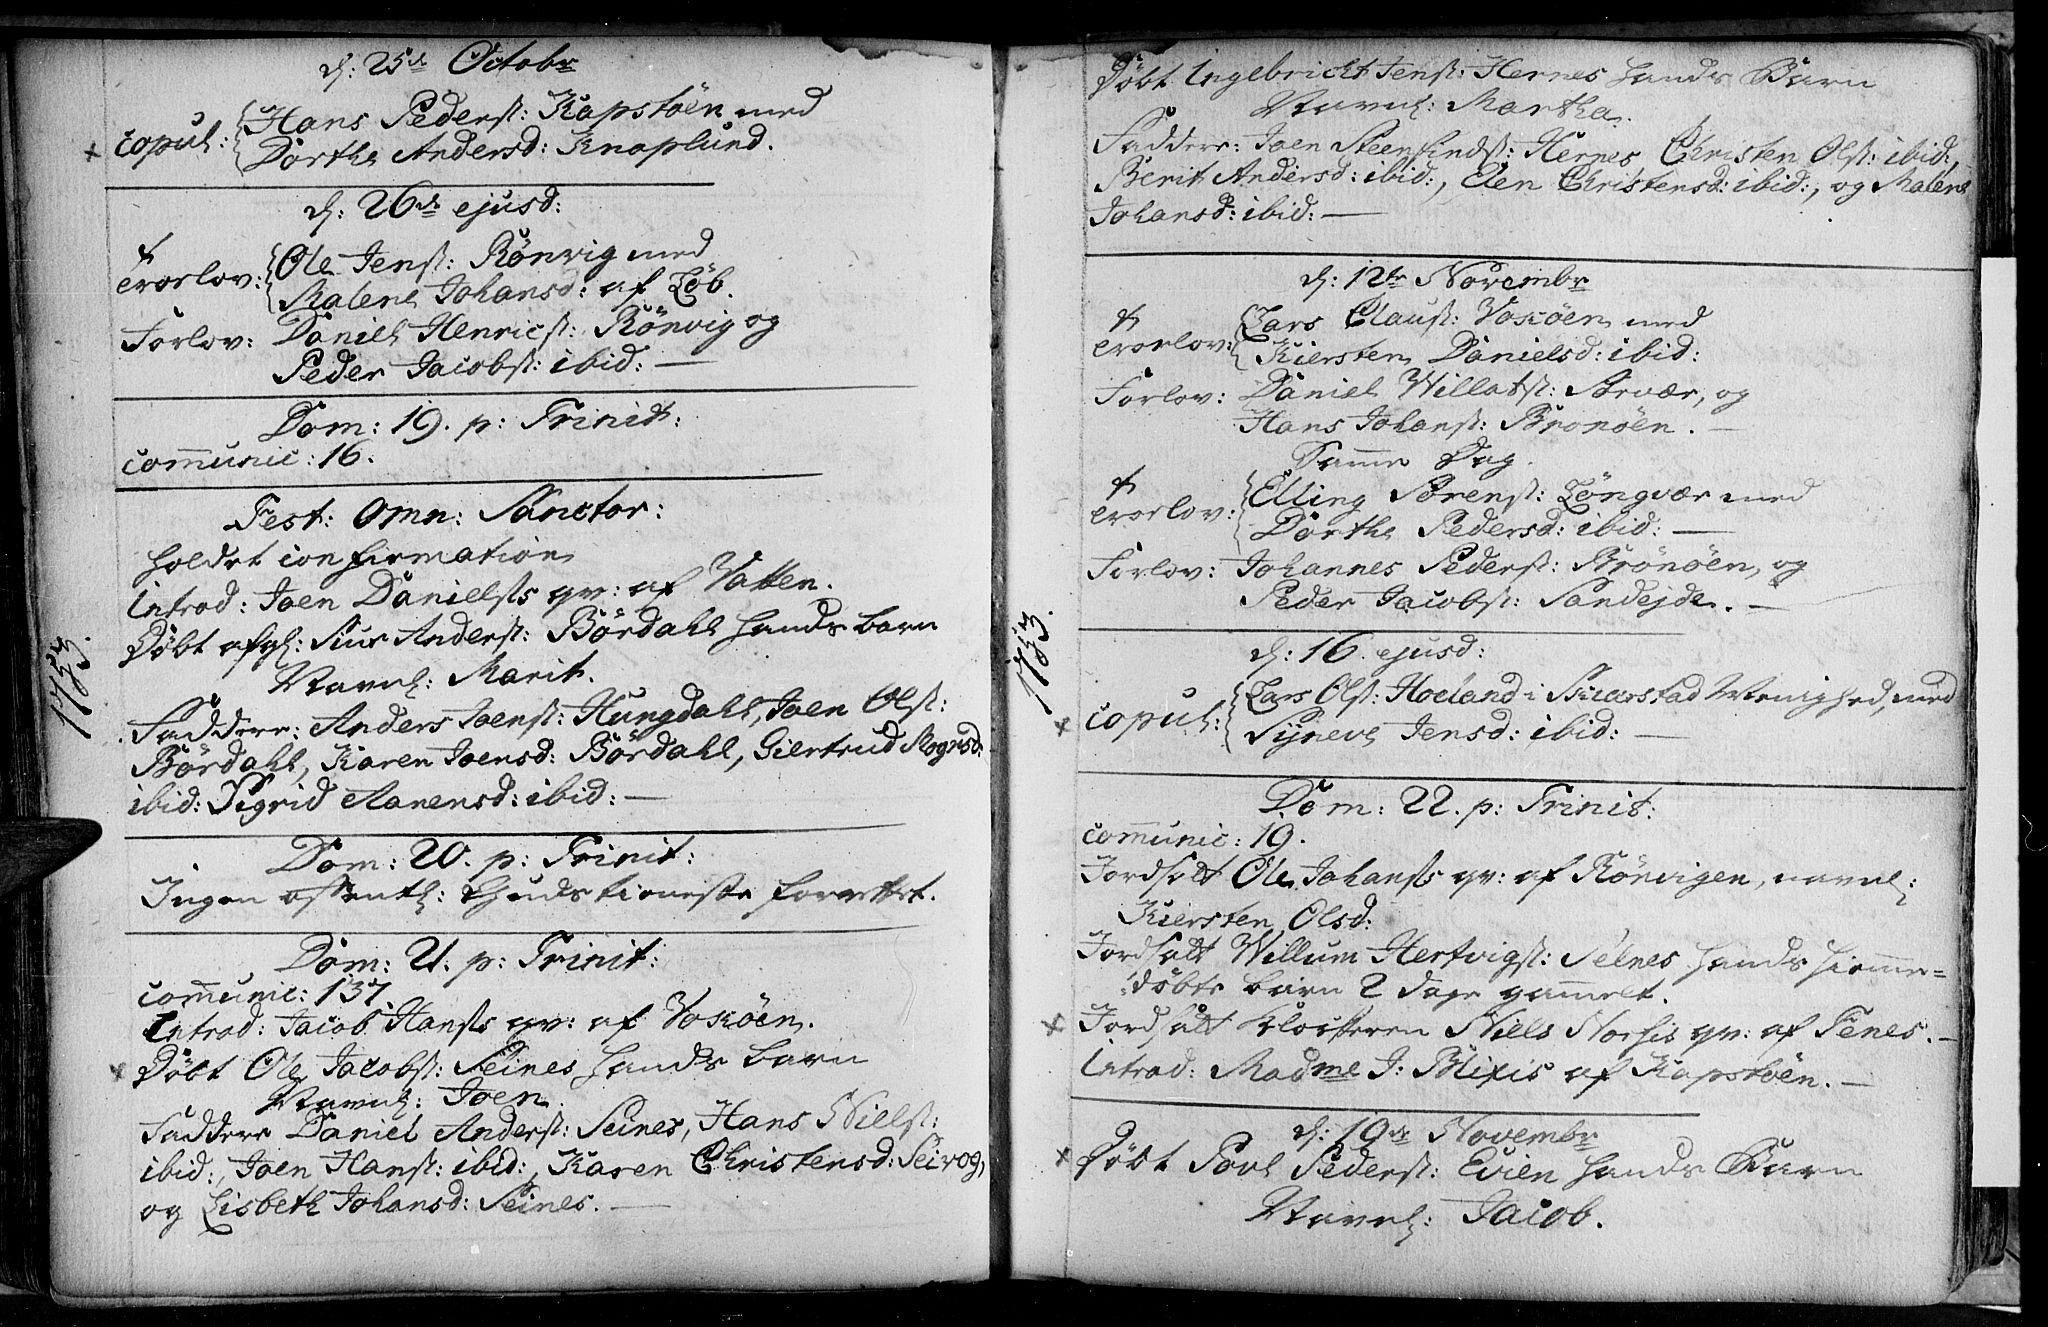 d: 25de Octobr
copul: Hans Peders: Kapstöen med
Dorthe Andersd: Knaplund.
d: 26de ejusd:
trorlov: Ole Jens: Rönvig med
Malene Johansd: af Löb.
Forlov: Daniel Henrics: Rönvig og
Peder Jacobs: ibid: —
Dom: 19. p: Trinit:
comunic: 16.
Fest: Omn: Sanctor:
holdet confirmation
Introd: Joen Danielss qv: af Vatten.
Döbt afgl: Siur Anders: Bördahl hands barn
Navnl: Marit.
Faddere: Anders Joens: Hungdahl, Joen Ols:
Bördahl, Karen Joensd: Bördahl, Giertrud Mognsd:
ibid: Sigrid Aarensd: ibid: —
Dom: 20. p: Trinit:
Ingen offentl: Gudstieneste forrettet.
Dom: 21. p: Trinit:
comunic: 137
Introd: Jacob Hanss qv: af Voxöen.
Döbt Ole Jacobs: Seines hands barn
Navnl: Joen.
Faddere Daniel Anders: Seines, Hans Niels:
ibid:, Joen Hans: ibid:, Karen Christensd: Seivog,
og Lisbeth Johansd: Seines. —
1783.
Döbt Ingebricht Jens: Hernes hands Barn
Navnl: Martha.
Faddere: Joen Steenfinds: Hernes Christen Ols: ibid:,
Berit Andersd: ibid:, Elen Christensd: ibid:, og Malene
Johansd: ibid: —
d: 12te Novembr
trorlov: Lars Claus: Voxöen med
Kiersten Danielsd: ibid:
Forlov: Daniel Willats: Arvær, og
Hans Johans: Bronöen. —
Same Dag.
trorlov: Elling Sörens: Löngvær med
Dorthe Pedersd: ibid: —
Forlov: Johannes Peders: Brönöen, og
Peder Jacobs: Sandejde. —
1783.
d: 16. ejusd:
copul: Lars Ols: Hoeland i Skierstad Menighed, med
Synneve Jensd: ibid: —
Dom: 22. p: Trinit:
comunic: 19.
Jordfæst Ole Johanss qv: af Rönvigen, navnl:
Kiersten Olsd:
Jordfæst Willum Hertvigs: Selnes hands hieme=
döbte barn 2 dage gamelt.
Jordfæst Klockeren Niels qv: af Fenes. —
Introd: Madme J: Blixis af Kapstöen. —
d: 19de Novembr
Döbt Povl Peders: Evien hands Barn
Navnl: Jacob.